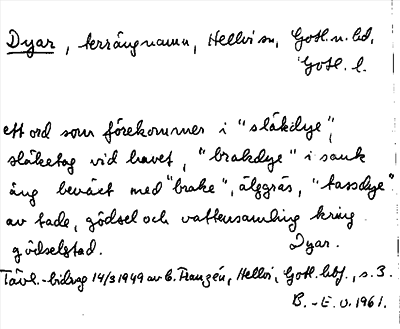 Dyar, terrängnamn, Hellvi sn, Gotl.n. hd,
Gotl. l.
ett ord som förekommer i "släkdye",
släketag vid havet, "brakdye" i sank
äng beväxt med "brake", älggräs, "tassdye"
av tade, gödsel och vattensamling kring
gödselstad. Dyar.
Tävl.-bidrag 14/3 1949 av C. Franzén, Hellvi, Gotl. s. 3.
B.-E. O. 1961.